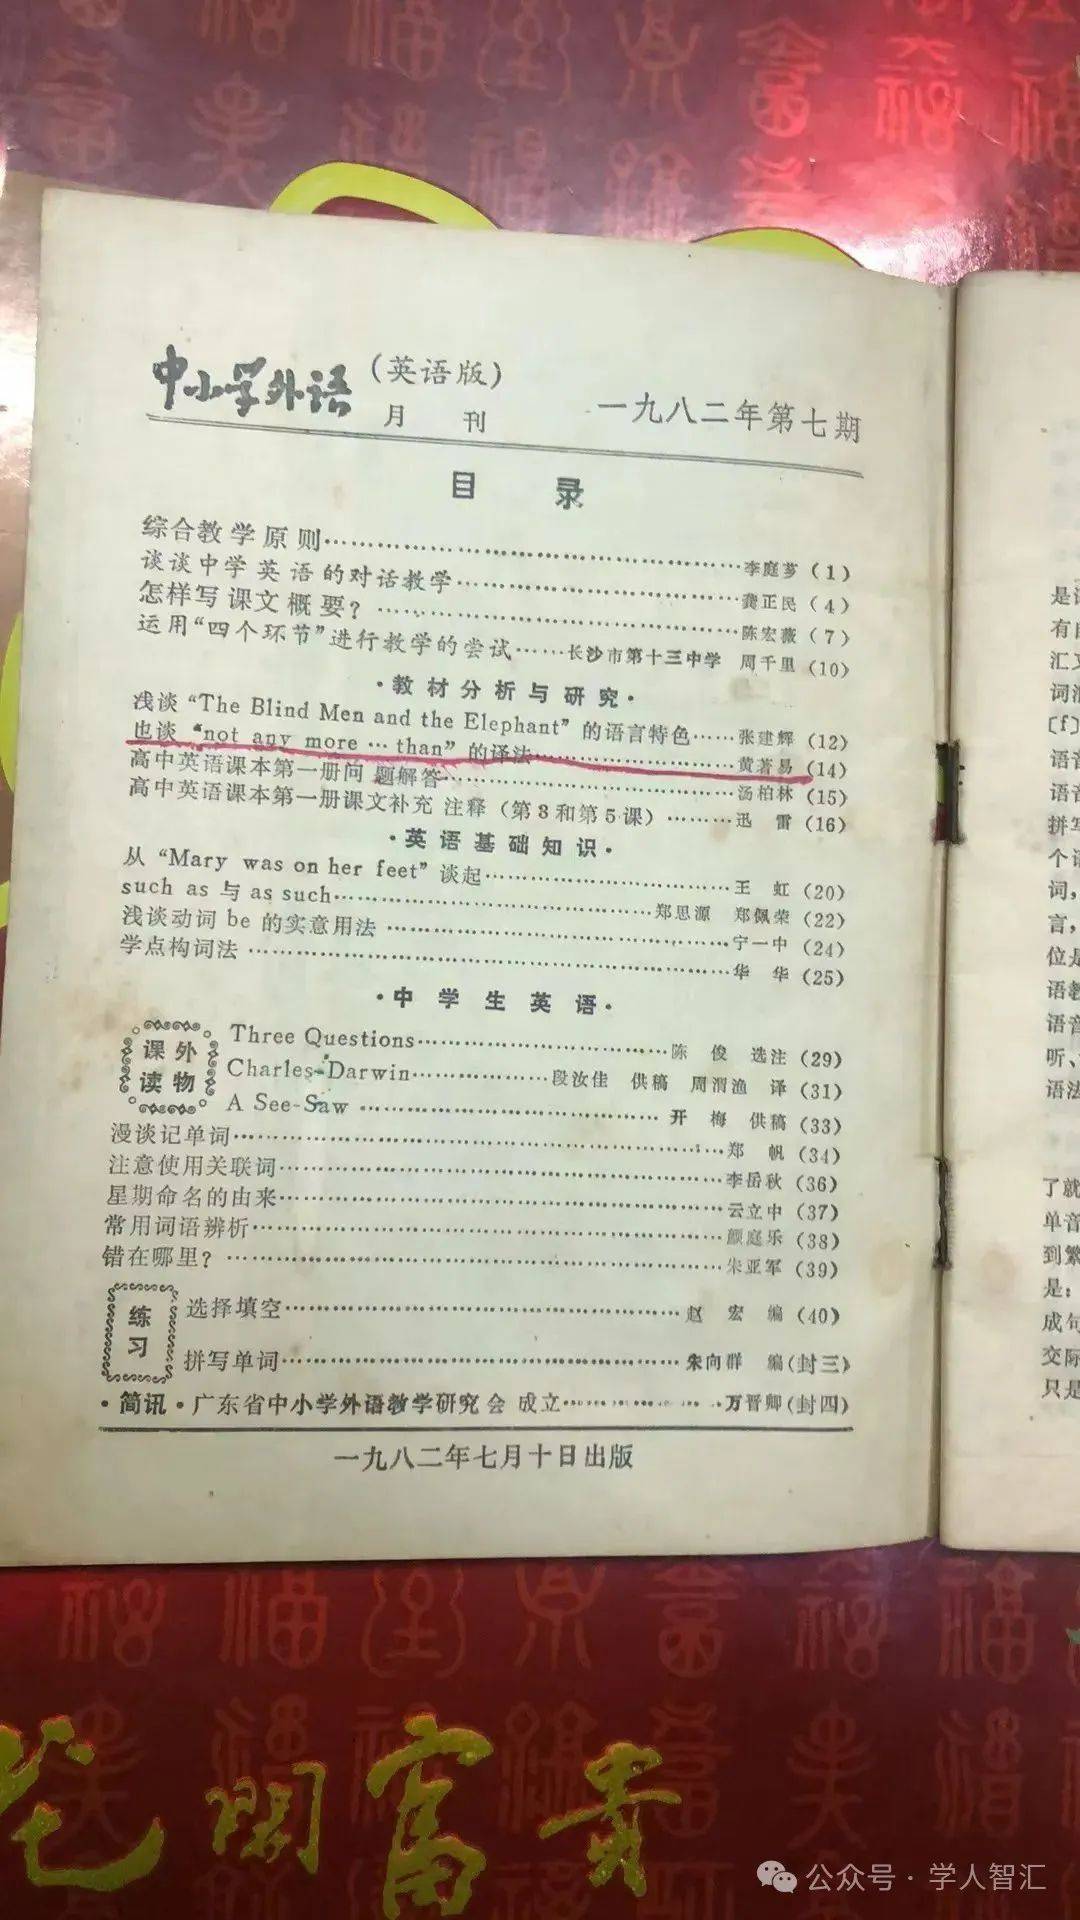 中小学外语（英语版）
月刊 一九八二年第七期
目录
综合教学原则……李庭芗（1）
谈谈中学英语的对话教学……龚正民（4）
怎样写课文概要？……陈宏薇（7）
运用“四个环节”进行教学的尝试……长沙市第十三中学 周千里（10）
·教材分析与研究·
浅谈“The Blind Men and the Elephant”的语言特色……张建辉（12）
也谈“not any more … than”的译法……黄著易（14）
高中英语课本第一册问题解答……汤柏林（15）
高中英语课本第一册课文补充注释（第3和第5课）……迅雷（16）
·英语基础知识·
从“Mary was on her feet”谈起……王虹（20）
such as 与 as such……郑思源 郑佩荣（22）
浅谈动词 be 的实意用法……宁一中（24）
学点构词法……华华（25）
·中学生英语·
课外读物
Three Questions……陈俊 选注（29）
Charles Darwin……段汝佳 供稿 周渭渔 译（31）
A See-Saw……开梅 供稿（33）
漫谈记单词……郑帆（34）
注意使用关联词……李岳秋（36）
星期命名的由来……云立中（37）
常用词语辨析……颜庭乐（38）
错在哪里？……朱亚军（39）
练习
选择填空……赵宏 编（40）
拼写单词……朱向群 编（封三）
·简讯·广东省中小学外语教学研究会成立……万晋卿（封四）
一九八二年七月十日出版
是
有
汇
词
[f]
语音
语音
拼写
个语
词，
言，
位是
语教
语音
听、
语法
了就
单音
到繁
是：
成句
交际
只是
花開富貴
公众号·学人智汇